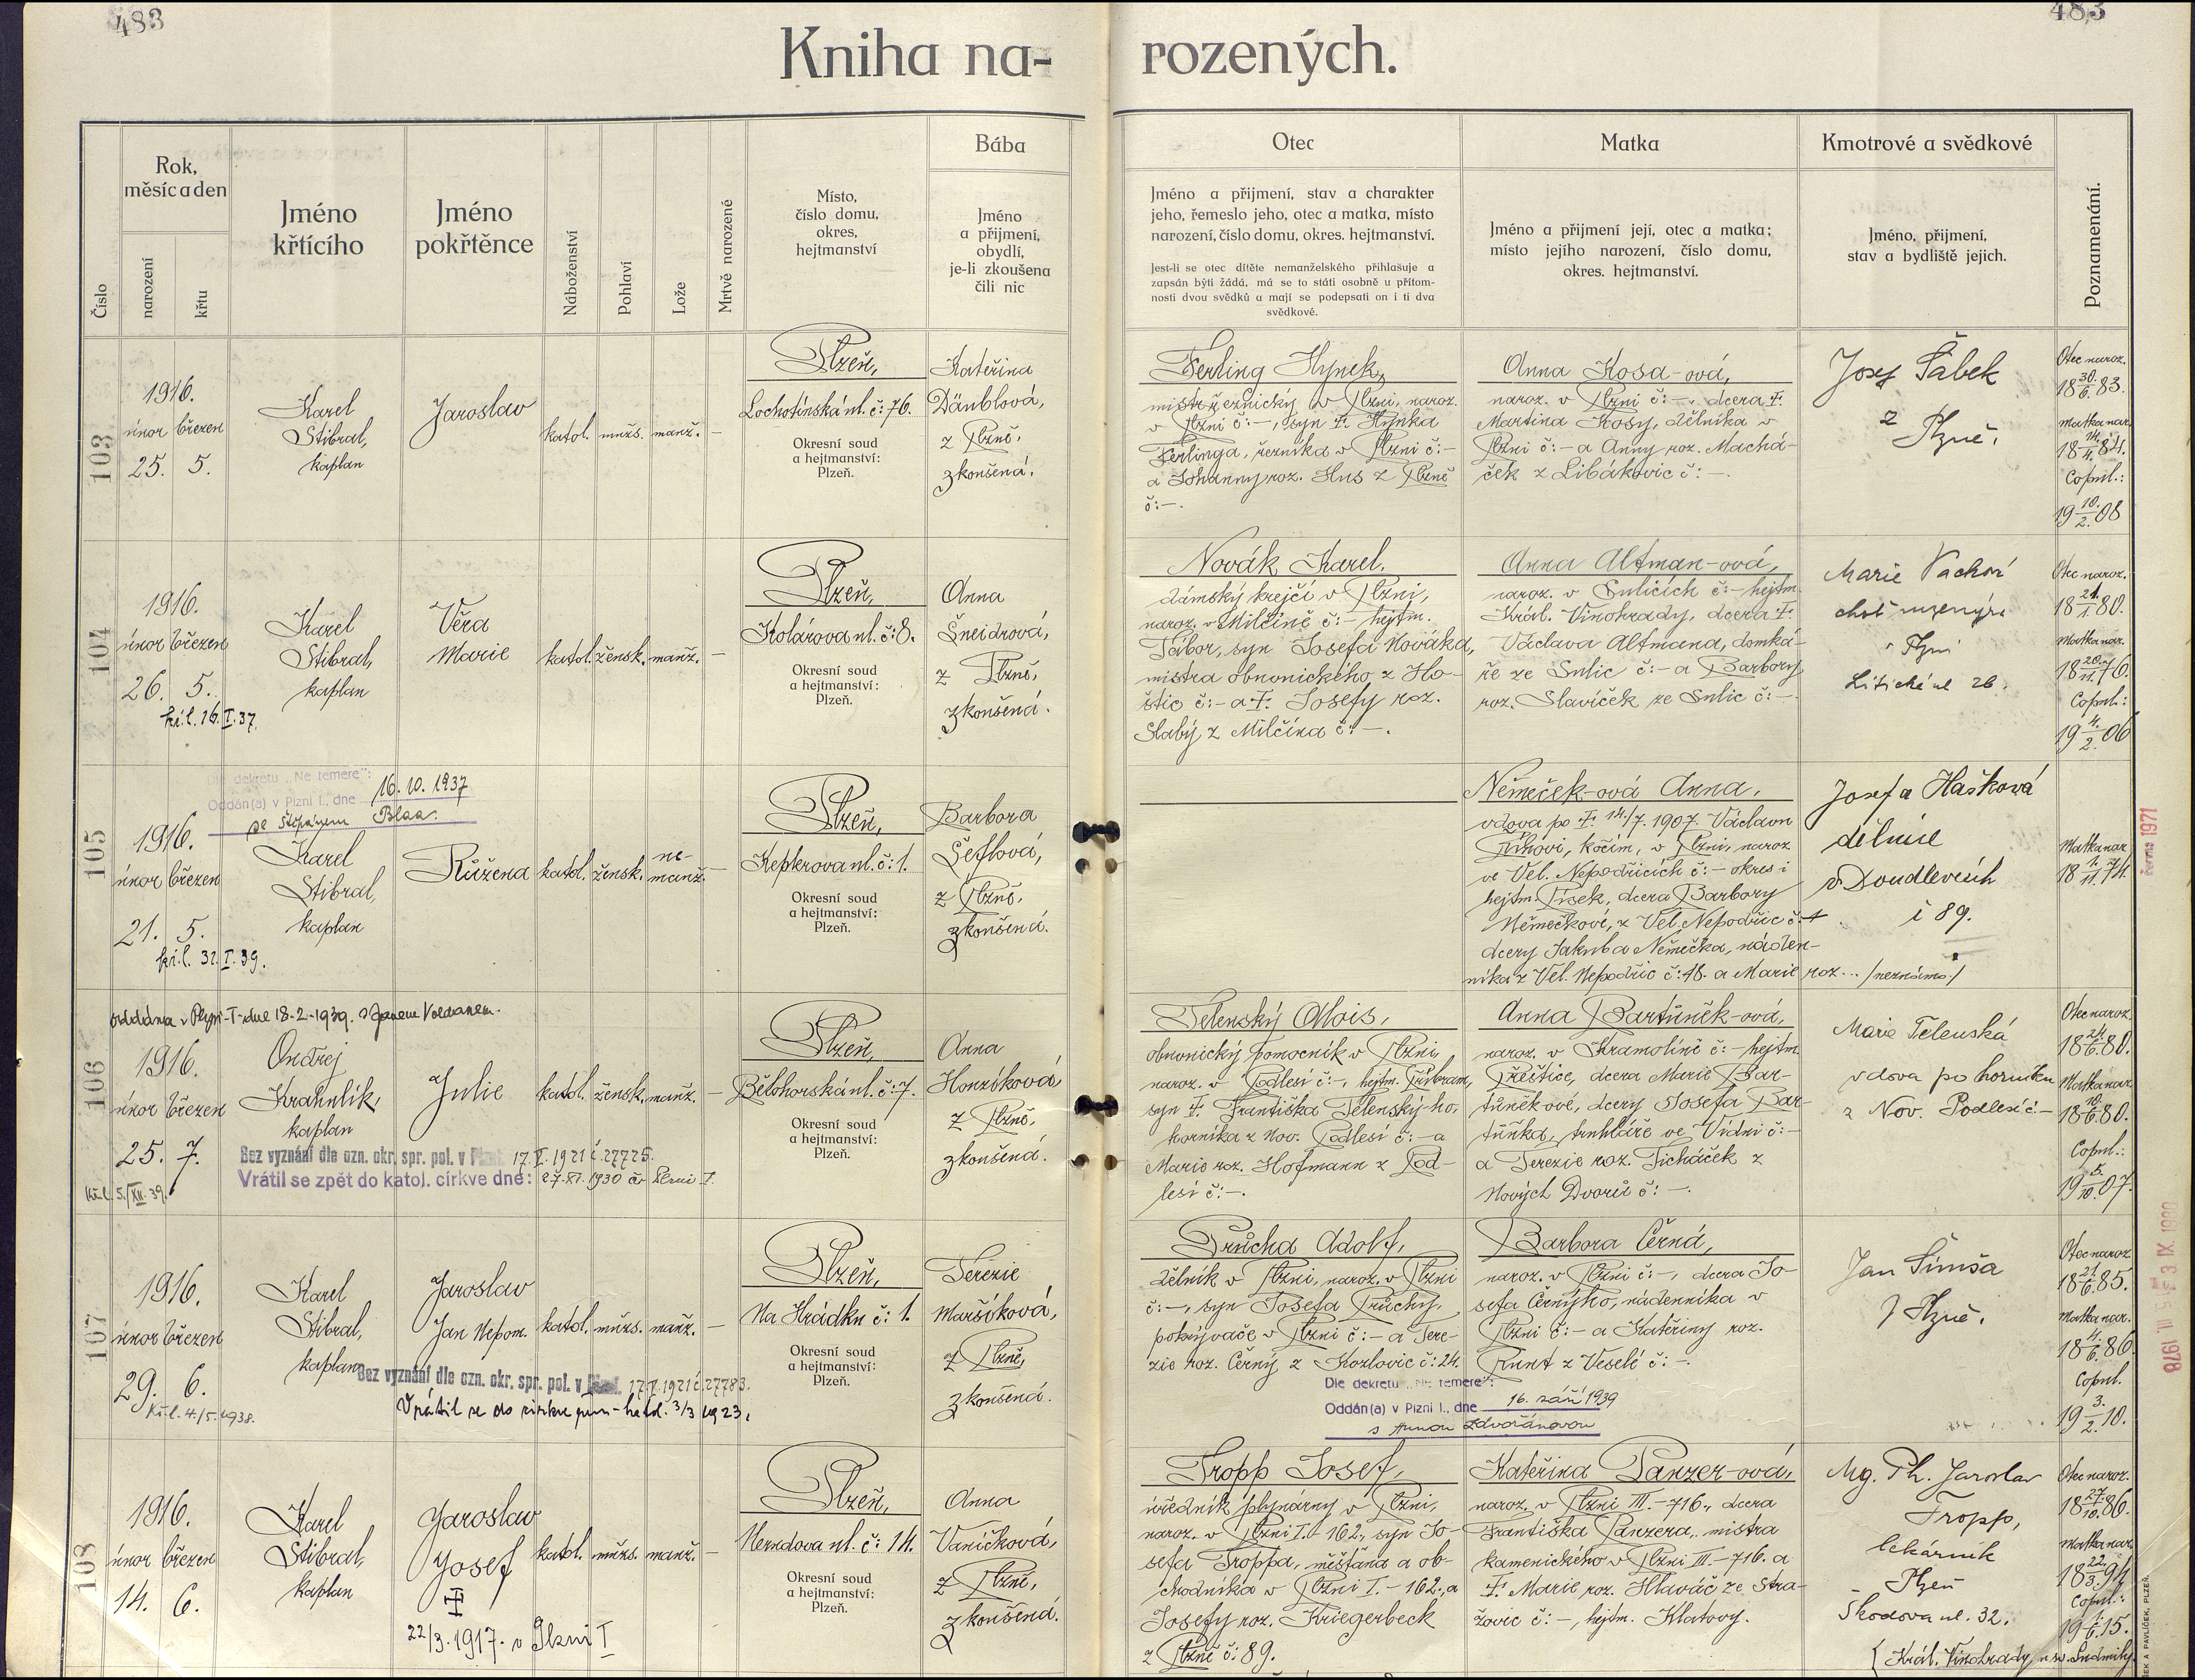 483
483
Kniha na-rozených.
Číslo
Rok, měsíc a den
narození
křtu
Jméno křtícího
Jméno pokřtěnce
Náboženství
Pohlaví
Lože
Mrtvě narozené
Místo,
číslo domu,
okres,
hejtmanství
Bába
Jméno
a přijmení,
obydlí,
je-li zkoušena
čili nic
Otec
Jméno a přijmení, stav a charakter
jeho, řemeslo jeho, otec a matka, místo
narození, číslo domu, okres. hejtmanství.
Jest-li se otec dítěte nemanželského přihlašuje a
zapsán býti žádá, má se to státi osobně u přítom-
nosti dvou svědků a mají se podepsati on i ti dva
svědkové.
Matka
Jméno a přijmení její, otec a matka;
místo jejího narození, číslo domu,
okres. hejtmanství.
Kmotrové a svědkové
Jméno, přijmení,
stav a bydliště jejich.
Poznamenání.
103
1916.
únor březen
25. 5.
Karel
Stibral,
kaplan
Jaroslav
katol. mužs. manž. –
Plzeň,
Lochotínská ul. č: 76.
Okresní soud
a hejtmanství:
Plzeň.
Kateřina
Däublová,
z Plzně,
zkoušená.
Ferling Hynek,
mistr řeznický v Plzni, naroz.
v Plzni č:–, syn F. Hynka
Ferlinga, řezníka v Plzni č:–
a Johanny roz. Hus z Plzně
č:–.
Anna Kosa-ová,
naroz. v Plzni č:–, dcera F.
Martina Kosy, dělníka v
Plzni č:– a Anny roz. Machá-
ček z Libákovic č:–.
Josef Šabek
z
Plzně.
Otec naroz.
18 30./6. 83.
Matka nar.
18 14./4. 84.
Copul.:
19 10./2. 08
104
1916.
únor březen
26. 5.
kř. l. 16. I. 37.
Karel
Stibral,
kaplan
Věra
Marie
katol. žensk. manž. –
Plzeň,
Kolárova ul. č: 8.
Okresní soud
a hejtmanství:
Plzeň.
Anna
Šneidrová,
z Plzně,
zkoušená.
Novák Karel.
dámský krejčí v Plzni,
naroz. v Milčíně č:– hejtm.
Tábor, syn Josefa Nováka,
mistra obuvnického z Ho-
štic č:– a F. Josefy roz.
Slabý z Milčína č:–.
Anna Altman-ová,
naroz. v Sulicích č:– hejtm.
Král. Vinohrady, dcera F.
Václava Altmana, domká-
ře ze Sulic č:– a Barbory
roz. Slavíček ze Sulic č:–.
Marie Vachová
choť inženýra
v Plzni
Litická ul 26.
Otec naroz.
18 21./1. 80.
Matka nar.
18 20./11. 76.
Copul.:
19 4./2. 06
105
Dle dekretu „Ne temere":
Oddán(a) v Plzni I., dne 16. 10. 1937
se Štěpánem Blaa.
1916.
únor březen
21. 5.
kř. l. 32. I. 39.
Karel
Stibral,
kaplan
Růžena
katol. žensk. ne-
manž. –
Plzeň,
Kepkrova ul. č: 1.
Okresní soud
a hejtmanství:
Plzeň.
Barbora
Šeflová,
z Plzně,
zkoušená.
Němeček-ová Anna,
vdova po F. 14./7. 1907. Václavu
Říhovi, kočím, v Plzni, naroz
ve Vel. Nepodřicích č:– okres i
hejtm. Písek, dcera Barbory
Němečkové, z Vel. Nepodřic č: 1
dcery Jakuba Němečka, náden-
níka z Vel. Nepodřic č: 48. a Marie roz... /neznámo/
Josefa Hašková
dělnice
v Doudlevcích
č 89.
Matka nar.
18 1./11. 74.
června 1971
106
oddána v Plzni-I-dne 18-2-1939. s Janem Voldanem.
1916.
únor březen
25. 7.
Kř. l. 5./XII. 39.
Ondřej
Krahulík,
kaplan
Julie
katol. žensk. manž. –
Bez vyznání dle ozn. okr. spr. pol. v Plzni 17. V. 1921 č. 27725.
Vrátil se zpět do katol. církve dne: 27. XI. 1930 čj Plzni I.
Plzeň,
Bělohorská ul. č: 7.
Okresní soud
a hejtmanství:
Plzeň.
Anna
Honzíková,
z Plzně,
zkoušená.
Telenský Alois,
obuvnický pomocník v Plzni,
naroz. v Podlesí č:–, hejtm. Příbram,
syn F. Františka Telenský-ho,
horníka z Nov. Podlesí č:– a
Marie roz. Hofmann z Pod-
lesí č:–.
Anna Bartůněk-ová,
naroz. v Kramolíně č:– hejtm.
Přeštice, dcera Marie Bar-
tůňkové, dcery Josefa Bar-
tůňka, truhláře ve Vídni č:–
a Terezie roz. Ticháček z
Nových Dvorů č:–.
Marie Telenská
vdova po horníku
z Nov. Podlesí č:–
Otec naroz.
18 24./6. 80.
Matka nar.
18 10./6. 80.
Copul.:
19 5./10. 07.
107
1916.
únor březen
29. 6.
Kř. l. 4./5. 1938.
Karel
Stibral,
kaplan
Jaroslav
Jan Nepom.
katol. mužs. manž. –
Bez vyznání dle ozn. okr. spr. pol. v Plzni 17. V. 1921 č. 27783.
Vrátil se do církve řím-katol. 3/3 1923.
Plzeň,
Na Hrádku č: 1.
Okresní soud
a hejtmanství:
Plzeň.
Terezie
Maršíková,
z Plzně,
zkoušená.
Průcha Adolf,
dělník v Plzni, naroz. v Plzni
č:–, syn Josefa Průchy,
pokrývače v Plzni č:– a Tere-
zie roz. Černý z Kozlovic č: 24.
Barbora Černá,
naroz. v Plzni č:–, dcera Jo-
sefa Černýho, nádenníka v
Plzni č:– a Kateřiny roz.
Runt z Veselé č:–.
Dle dekretu „Ne temere":
Oddán(a) v Plzni I., dne 16. září 1939
s Annou Zdvořánovou
Jan Šimša
z Plzně.
Otec naroz
18 21./6. 85.
Matka nar.
18 4./6. 86.
Copul.
19 3./2. 10.
3. IX. 1980
III. 1978
108
1916.
únor březen
14. 6.
Karel
Stibral,
kaplan
Jaroslav
Josef
22/3. 1917. v Plzni I
katol. mužs. manž. –
Plzeň,
Nerudova ul. č: 14.
Okresní soud
a hejtmanství:
Plzeň.
Anna
Vaníčková,
z Plzně,
zkoušená.
Tropp Josef,
úředník plynárny v Plzni,
naroz. v Plzni I.–162., syn Jo-
sefa Troppa, měšťana a ob-
chodníka v Plzni I.–162., a
Josefy roz. Kriegerbeck
z Plzně č: 89.
Kateřina Panzer-ová,
naroz. v Plzni III.–716., dcera
Františka Panzera, mistra
kamenického v Plzni III.–716. a
F. Marie roz. Hlaváč ze Stra-
žovic č:–, hejtm. Klatovy.
Mg. Ph. Jaroslav
Tropp,
lékárník
Plzeň
Škodova ul. 32.
Otec naroz.
18 27./10. 86.
Matka nar.
18 22./3. 94.
Copul.:
19 1./6. 15.
{ Král. Vinohrady u sv. Ludmily.
ŠEK A PAVLÍČEK, PLZEŇ.